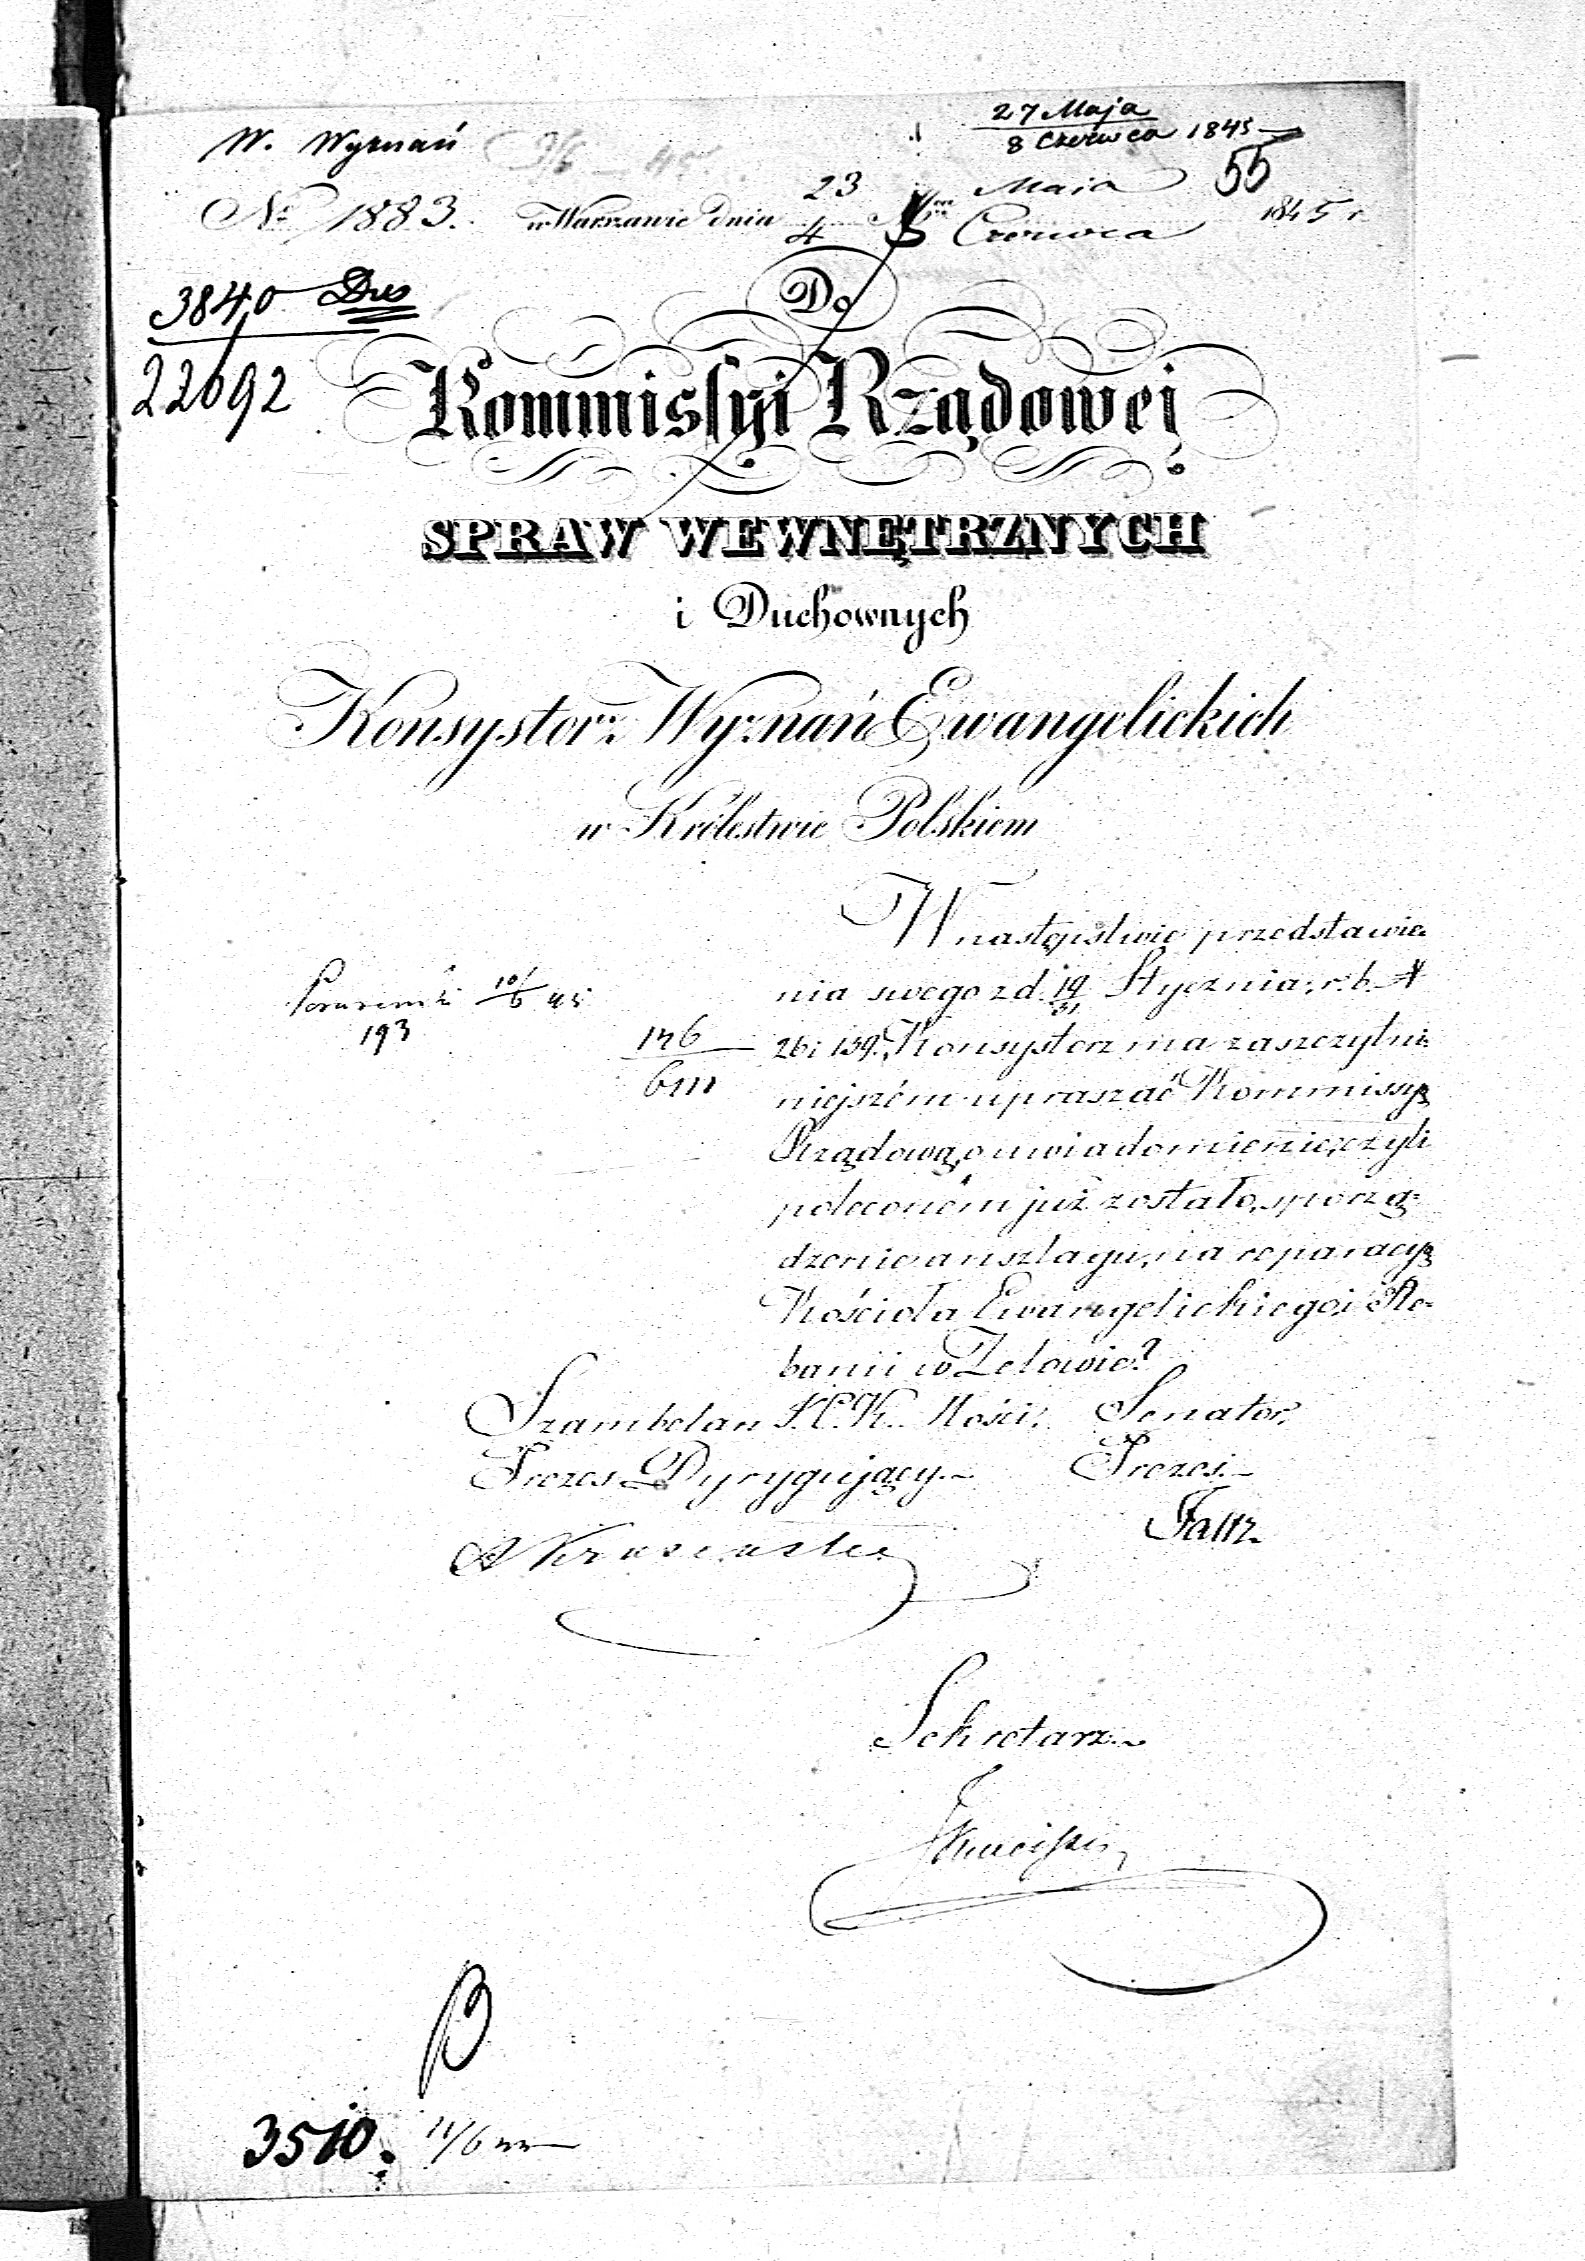 27 Maja
8 Czerwca 1845
W. Wyznań
55
23 Maia
No 1883. w Warszawie dnia 4 Czerwca 1845 r
3840 Dus
22092
Do
Kommissyi Rządowej
SPRAW WEWNĘTRZNYCH
i Duchownych
Konsystorz Wyznań Ewangelickich
w Królestwie Polskiem
W następstwie przedstawie-
nia swego z d. 19/31 Stycznia, r. b. N
26 i 159. Konsystorz ma zaszczyt ni-
niejszém upraszać Kommissyę
Rządową, o uwiadomienie, czyli
poleconém już zostało, sporzą-
dzenie anszlagu, na reparacyę
Kościoła Ewangelickiego i Ple-
banii w Zelowie?
10/6 45
193
146
6m
Szambelan J. C. K. Mości, Senator,
Prezes Dyrygujący. Prezes.
Faltz
Sekretarz
3510. 11/6